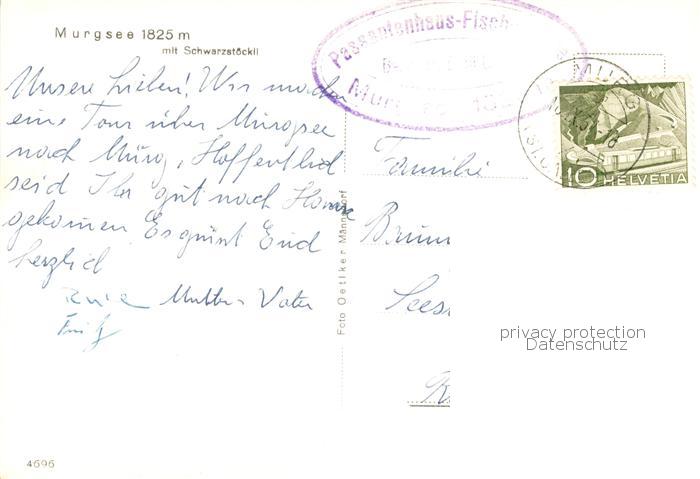 Murgsee 1825 m
mit Schwarzstöckli
Passantenhaus-Fisch
Mur
Unsere Lieben! Wir machen
eine Tour über Murgsee
nach Murg, Hoffentlich
seid Ihr gut nach Hause
gekommen. Es grüsst Euch
herzlich
Mutter Vater
Fritz
Familie
Brun
Sees
R
Foto Oetiker Männedorf
10 HELVETIA
privacy protection
Datenschutz
4696